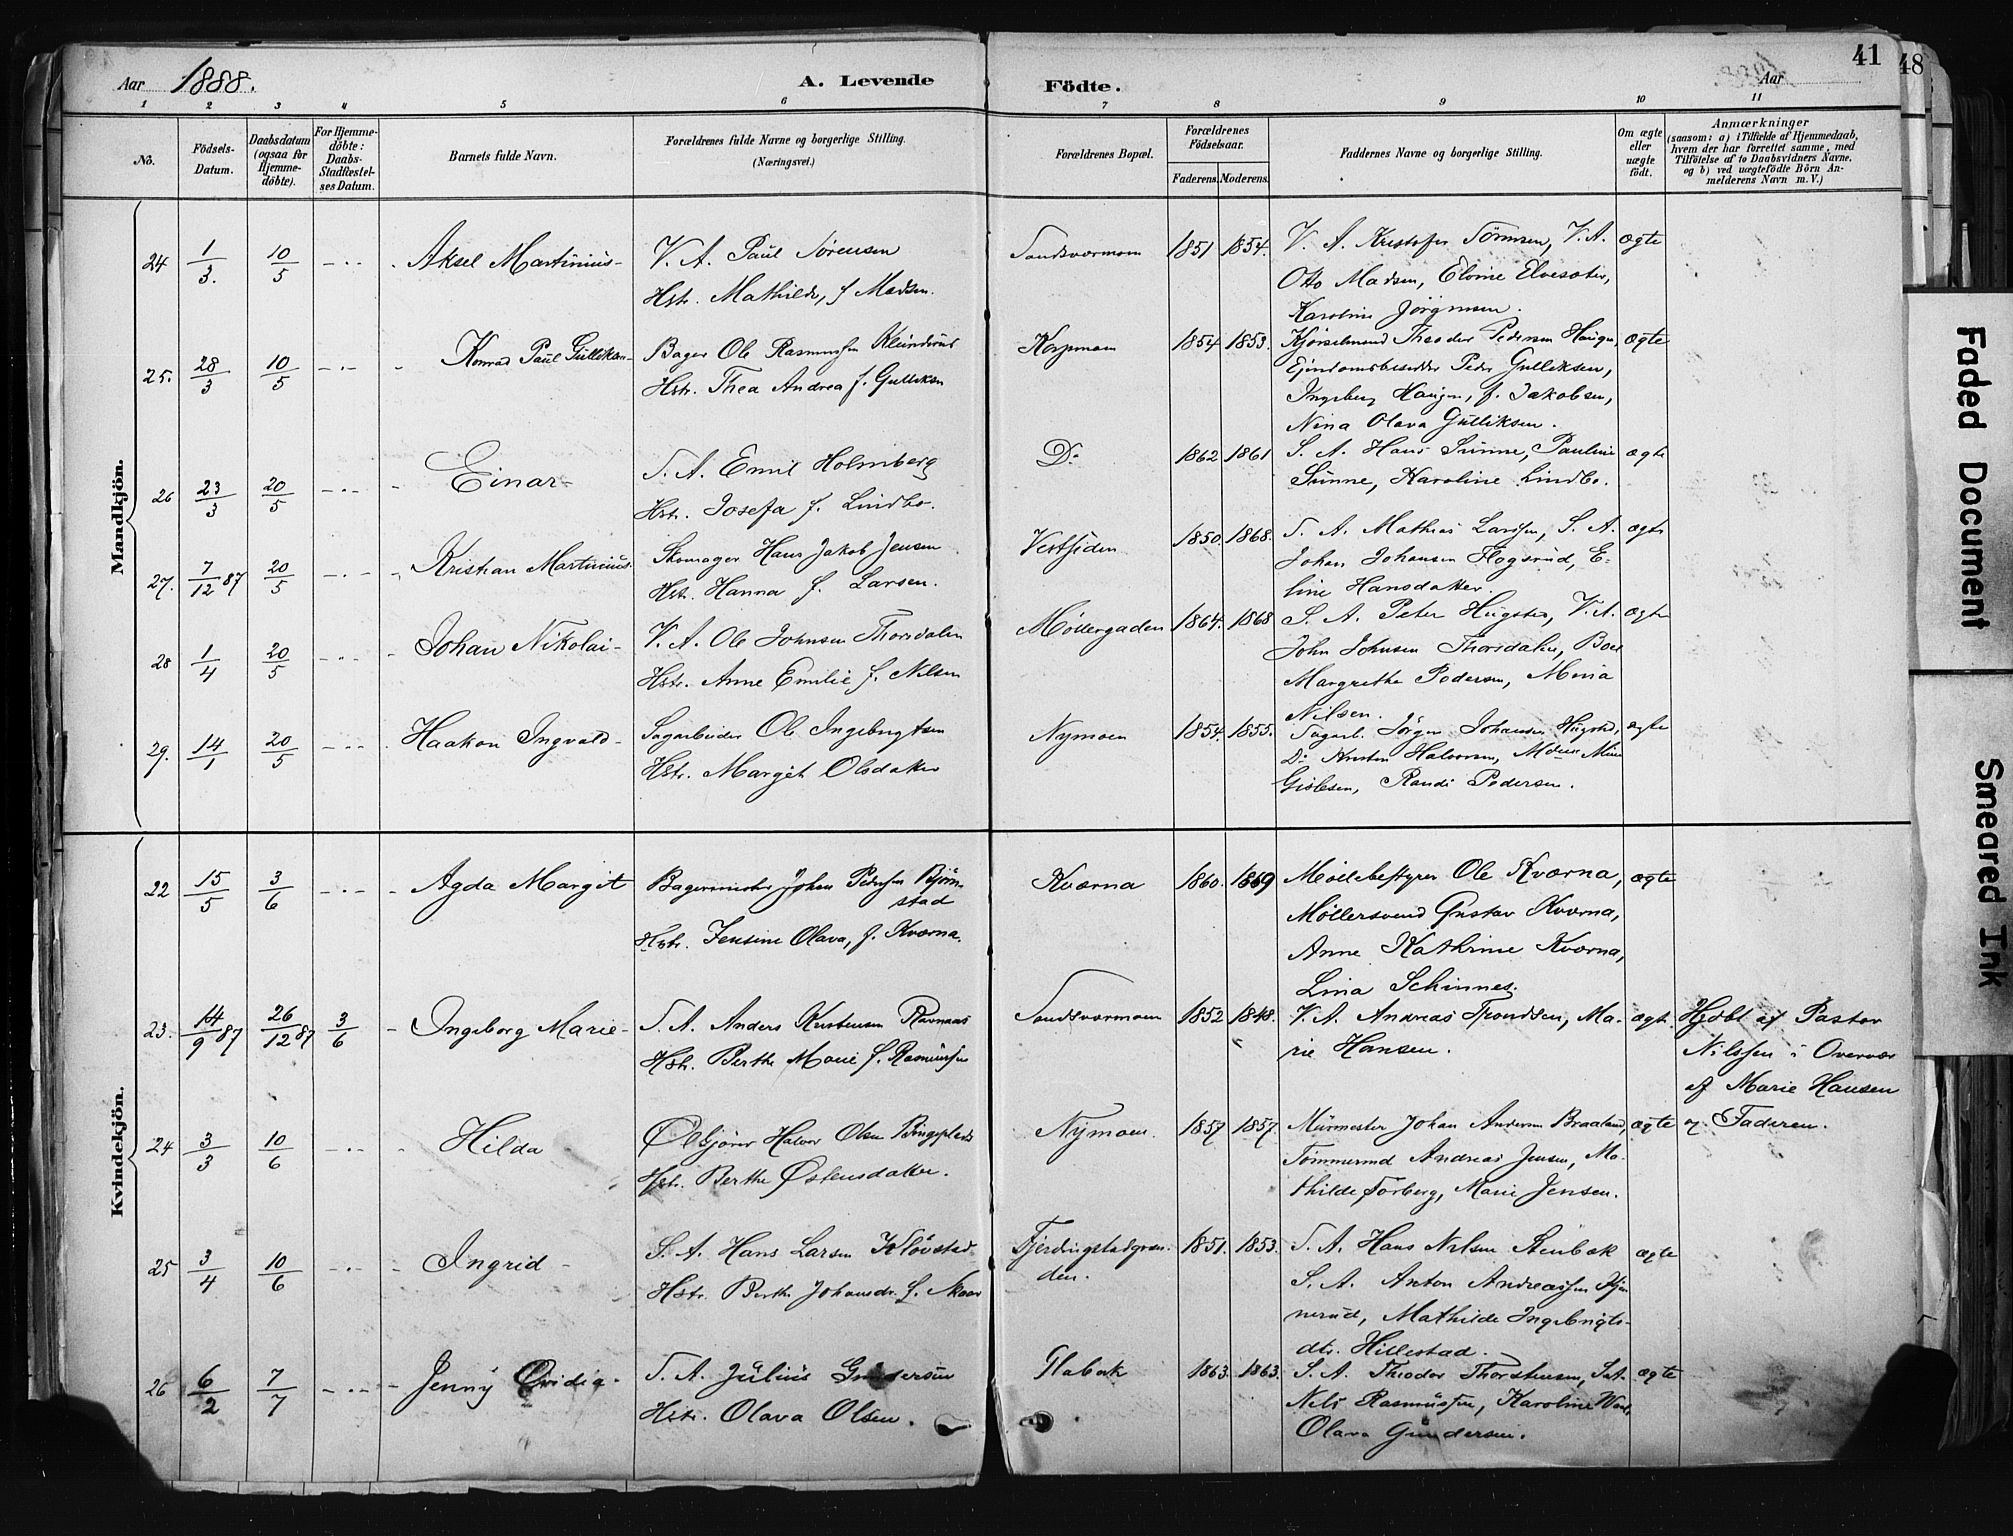 Aar 1888.
A. Levende
Födte.
Aar
41
48
1 2 3 4 5 6 7 8 9 10 11
No.
Födsels-
Datum.
Daabsdatum
(ogsaa for
Hjemme-
döbte).
For Hjemme-
döbte:
Daabs-
Stadfæstel-
ses Datum.
Barnets fulde Navn.
Forældrenes fulde Navne og borgerlige Stilling.
(Næringsvei.)
Forældrenes Bopæl.
Forældrenes
Födselsaar.
Faderens. Moderens.
Faddernes Navne og borgerlige Stilling.
Om ægte
eller
uægte
födt.
Anmærkninger
(saasom: a) i Tilfælde af Hjemmedaab,
hvem der har forrettet samme, med
Tilföielse af to Daabsvidners Navne,
og b) ved uægtefödte Börn An-
melderens Navn m. V.)
Mandkjön.
24 1/3. 10/5 Aksel Martinius
V. A. Paul Sørensen
Hstr. Mathilde, f Madsen.
Sandsværmoen 1851 1854.
V. A. Kristofer Sørensen, V. A.
Otto Madsen, Elvine Elvesæter,
Karoline Jørgensen.
ægte
25. 28/3 10/5 Konrad Paul Gulliksen
Bager Ole Rasmussen
Hstr. Thea Andrea f. Gulliksen
1854 1853.
Kjørselmand Theodor Pedersen Haugen,
Peder Gulliksen,
Ingeberg Haugen, f. Jakobsen,
Nina Olava Gulliksen.
ægte
26 23/3 20/5 Einar
S. A. Emil Holmberg
Hstr. Josefa f. Lindbo.
Do 1862 1861
S. A. Hans Sunne, Pauline
Sunne, Karoline Lindbo.
ægte
27. 7/12 87 20/5 Kristian Martinius
Skomager Hans Jakob Jensen
Hstr. Hanna f. Larsen.
Vestsiden 1850. 1868.
S. A. Mathias Larssen, S. A.
Johan Johansen Hogsrud, E-
line Hansdatter.
ægte
28 1/4 20/5 Johan Nikolai
V. A. Ole Johnsen Thorsdalen
Hstr. Anne Emilie f. Nilsen
Møllergaden 1864. 1868
S. A. Peter Hugsted, V. A.
John Johnsen Thorsdalen, Boel
Margrethe Pedersen, Mina
Nilsen.
ægte
29. 14/1 20/5 Haakon Ingvald
Sagarbeider Ole Ingebrigtsen
Hstr. Margit Olsdatter
Nymoen 1854. 1855.
Sagarb. Jörgen Johansen Hugsted,
Do Kristen Halvorsen,
Gislesen, Randi Pedersen.
ægte
Kvindekjön.
22 15/5 3/6 Agda Margit
Bagermester Johan Pedersen Bjørn-
stad
Hstr. Jensine Olava, f. Kværna.
Kværna 1860. 1869
Møllebestyrer Ole Kværna,
Møllersvend Gustav Kværna,
Anne Kathrine Kværna,
Lina Schinnes.
ægte
23. 14/9 87 26/12 87 3/6 Ingeborg Marie
S. A. Anders Kristensen Ravnaas
Hstr. Berthe Marie f. Rasmussen
Sandsværmoen 1852 1848.
V. A. Andreas Trondsen, Ma-
rie Hansen.
ægte
Hjdbt af Pastor
Nilssen i Overvær
af Marie Hansen
og Faderen.
24 3/3 10/6 Hilda
Ølkjører Halvor Olsen
Hstr. Berthe Østensdatter.
Nymoen. 1857 1857.
Murmester Johan Andersen Braaland,
Tømmermd Andreas Jensen, Ma-
thilde Torberg, Marie Jensen.
ægte
25 3/4 10/6 Ingrid
S. A. Hans Larsen Kløvstad
Hstr. Berthe Johansdr. f. Skaar
Fjerdingstadgran-
den. 1851. 1853.
S. A. Hans Nilsen Stenbæk
S. A. Anton Andreassen Hjer-
nerud, Mathilde Ingebrigts-
dtr. Hillestad.
ægte
26 6/2 7/7 Jenny Ovidia
S. A. Julius Gundersen
Hstr. Olava Olsen.
Flabæk 1863. 1863.
S. A. Theodor Thorstensen, S. A.
Nils Rasmussen, Karoline
Olava Gundersen.
ægte
Faded Document
Smeared Ink